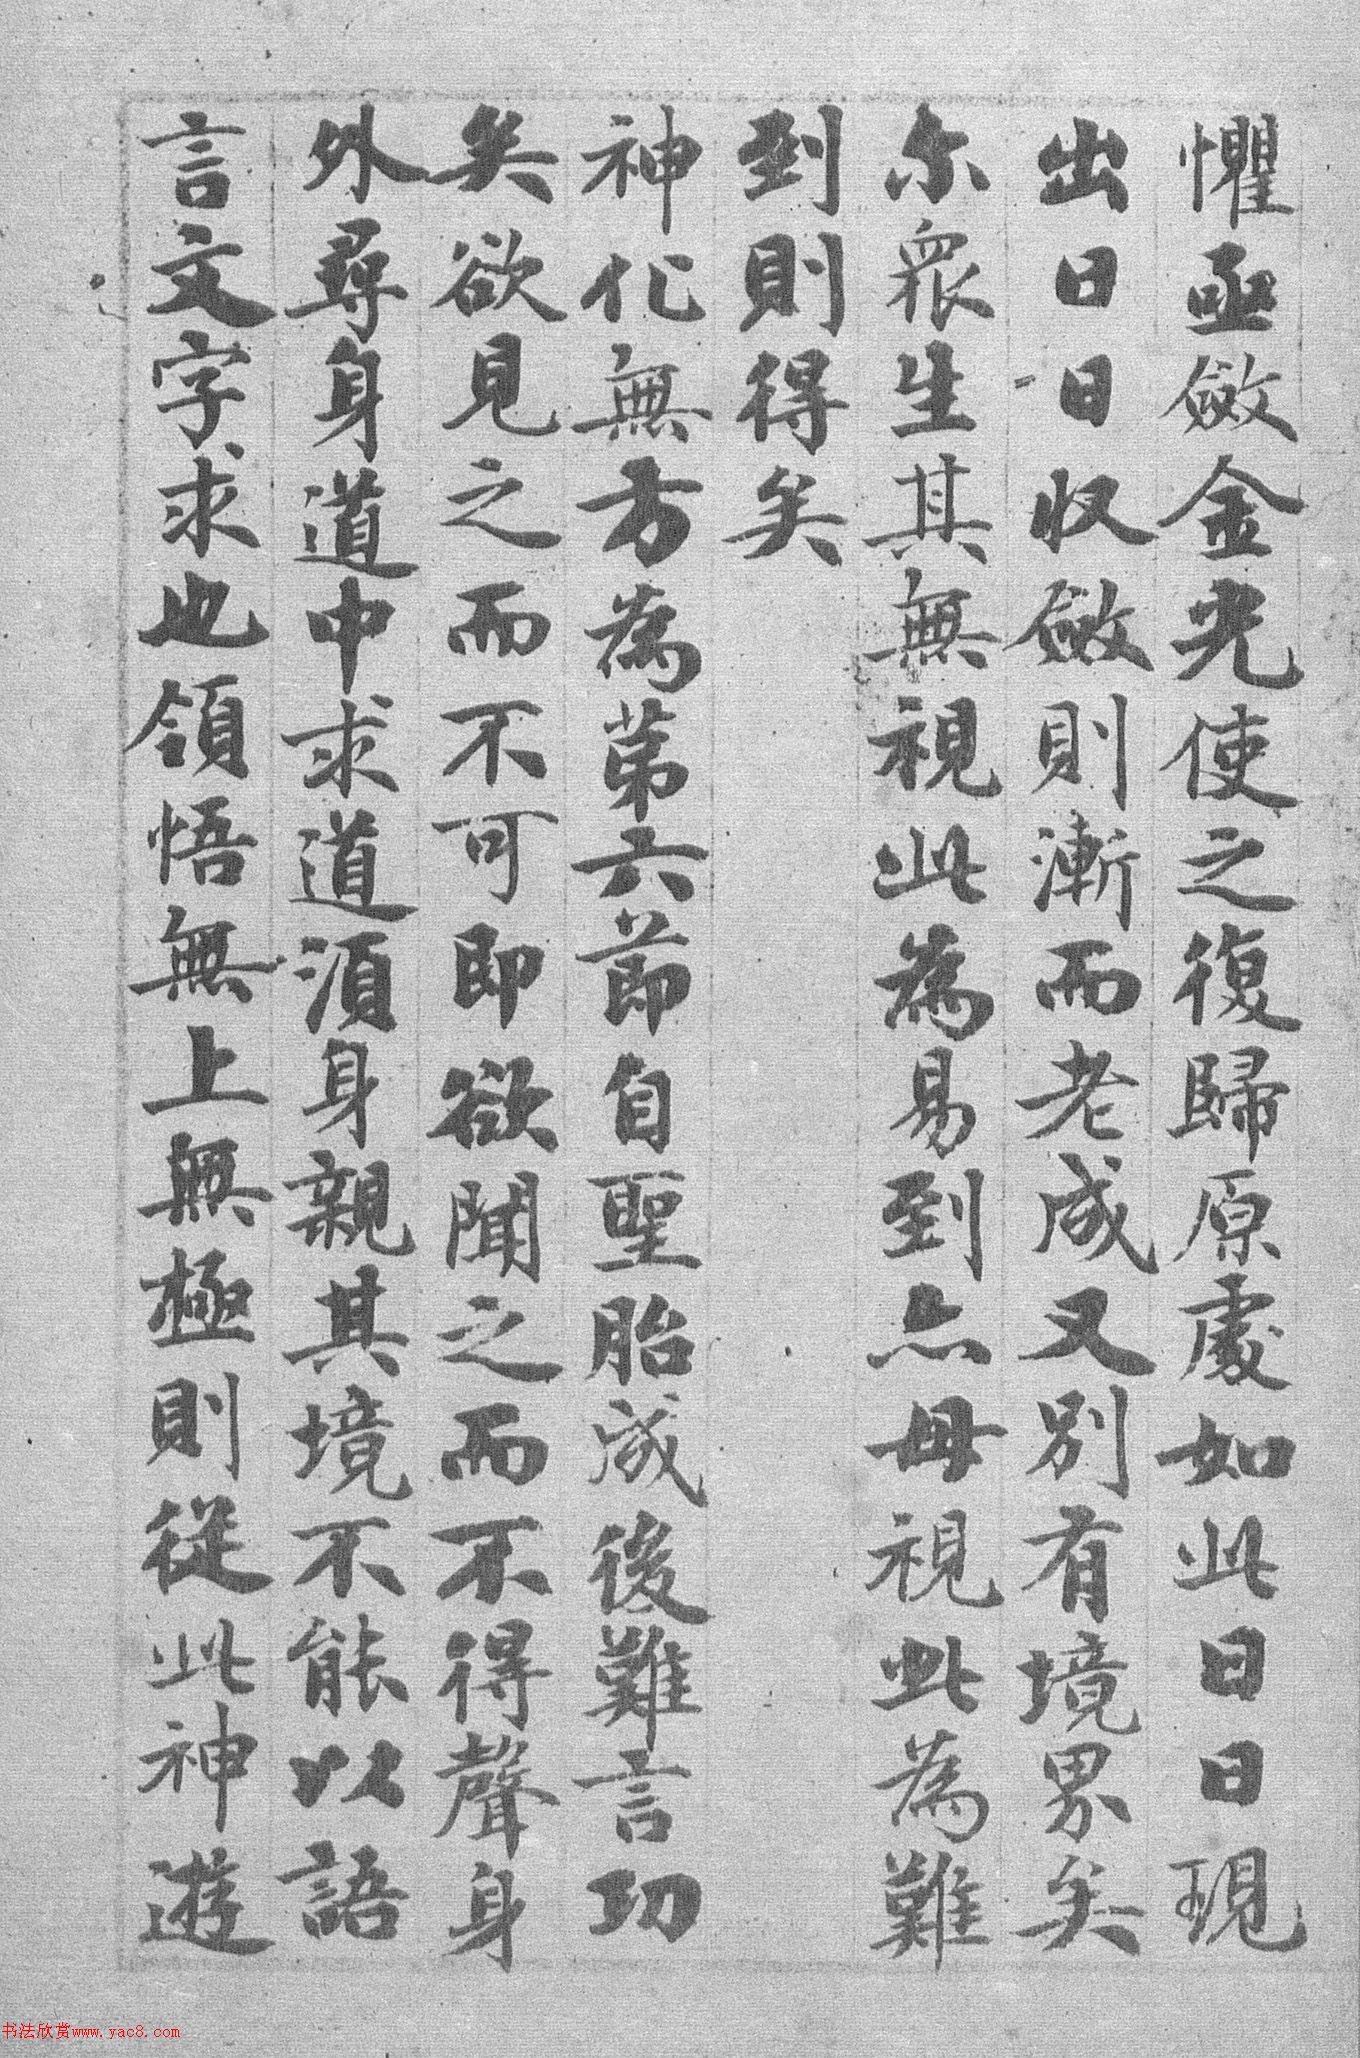 懼亟斂金光使之復歸原處如此日日現
出日日収斂則漸而老成又別有境界矣
尔眾生其無視此為易到亦毋視此為難
到則得矣
神化無方為苐六節自聖胎成後難言功
矣欲見之而不可即欲聞之而不得聲身
外尋身道中求道須身親其境不能以語
言文字求也領悟無上無極則從此神遊
书法欣赏www.yac8.com